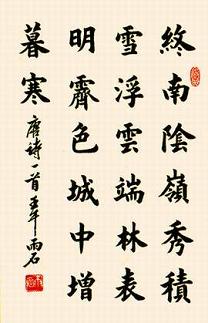 終南陰嶺秀積
雪浮雲端林表
明霽色城中增
暮寒
唐詩一首 雨石